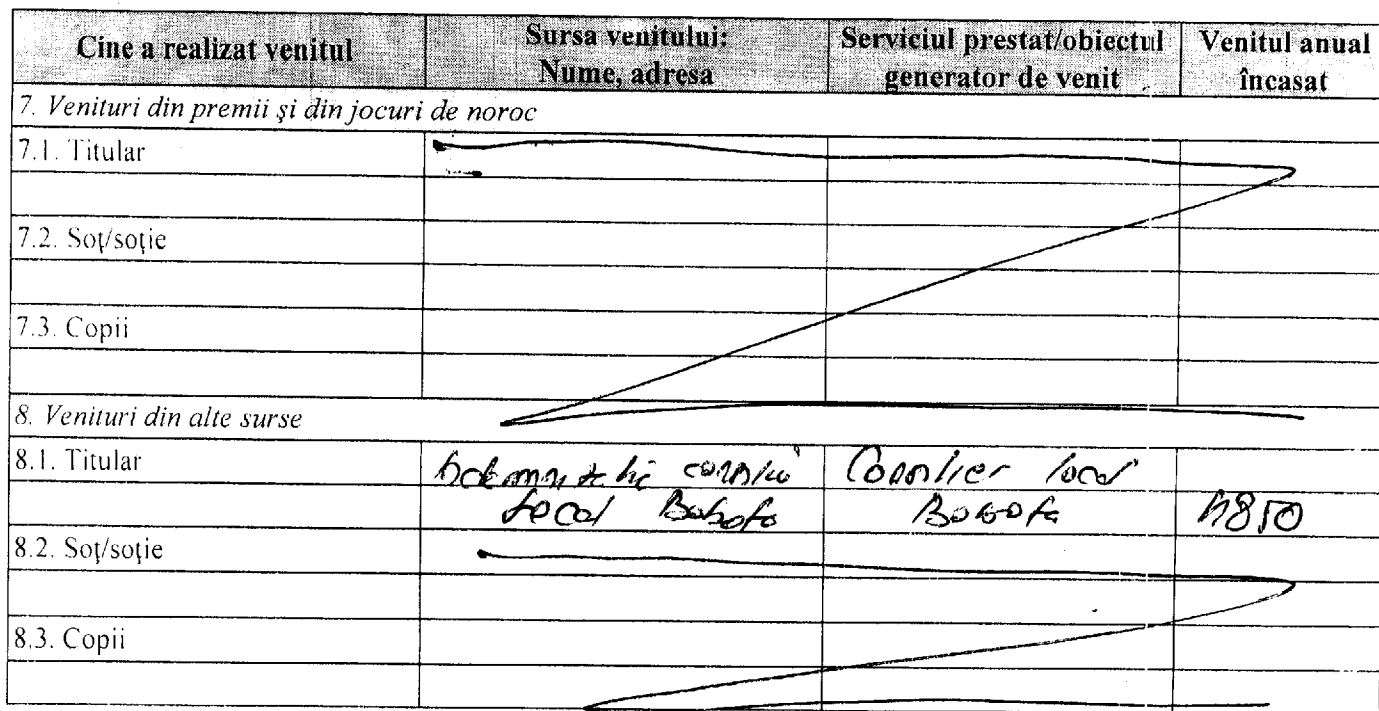 Cine a realizat venitul
Sursa venitului:
Nume, adresa
Serviciul prestat/obiectul
generator de venit
Venitul anual
încasat
7. Venituri din premii şi din jocuri de noroc
7.1. Titular
7.2. Soţ/soţie
7.3. Copii
8. Venituri din alte surse
8.1. Titular
local
Consilier local
8.2. Soţ/soţie
8.3. Copii